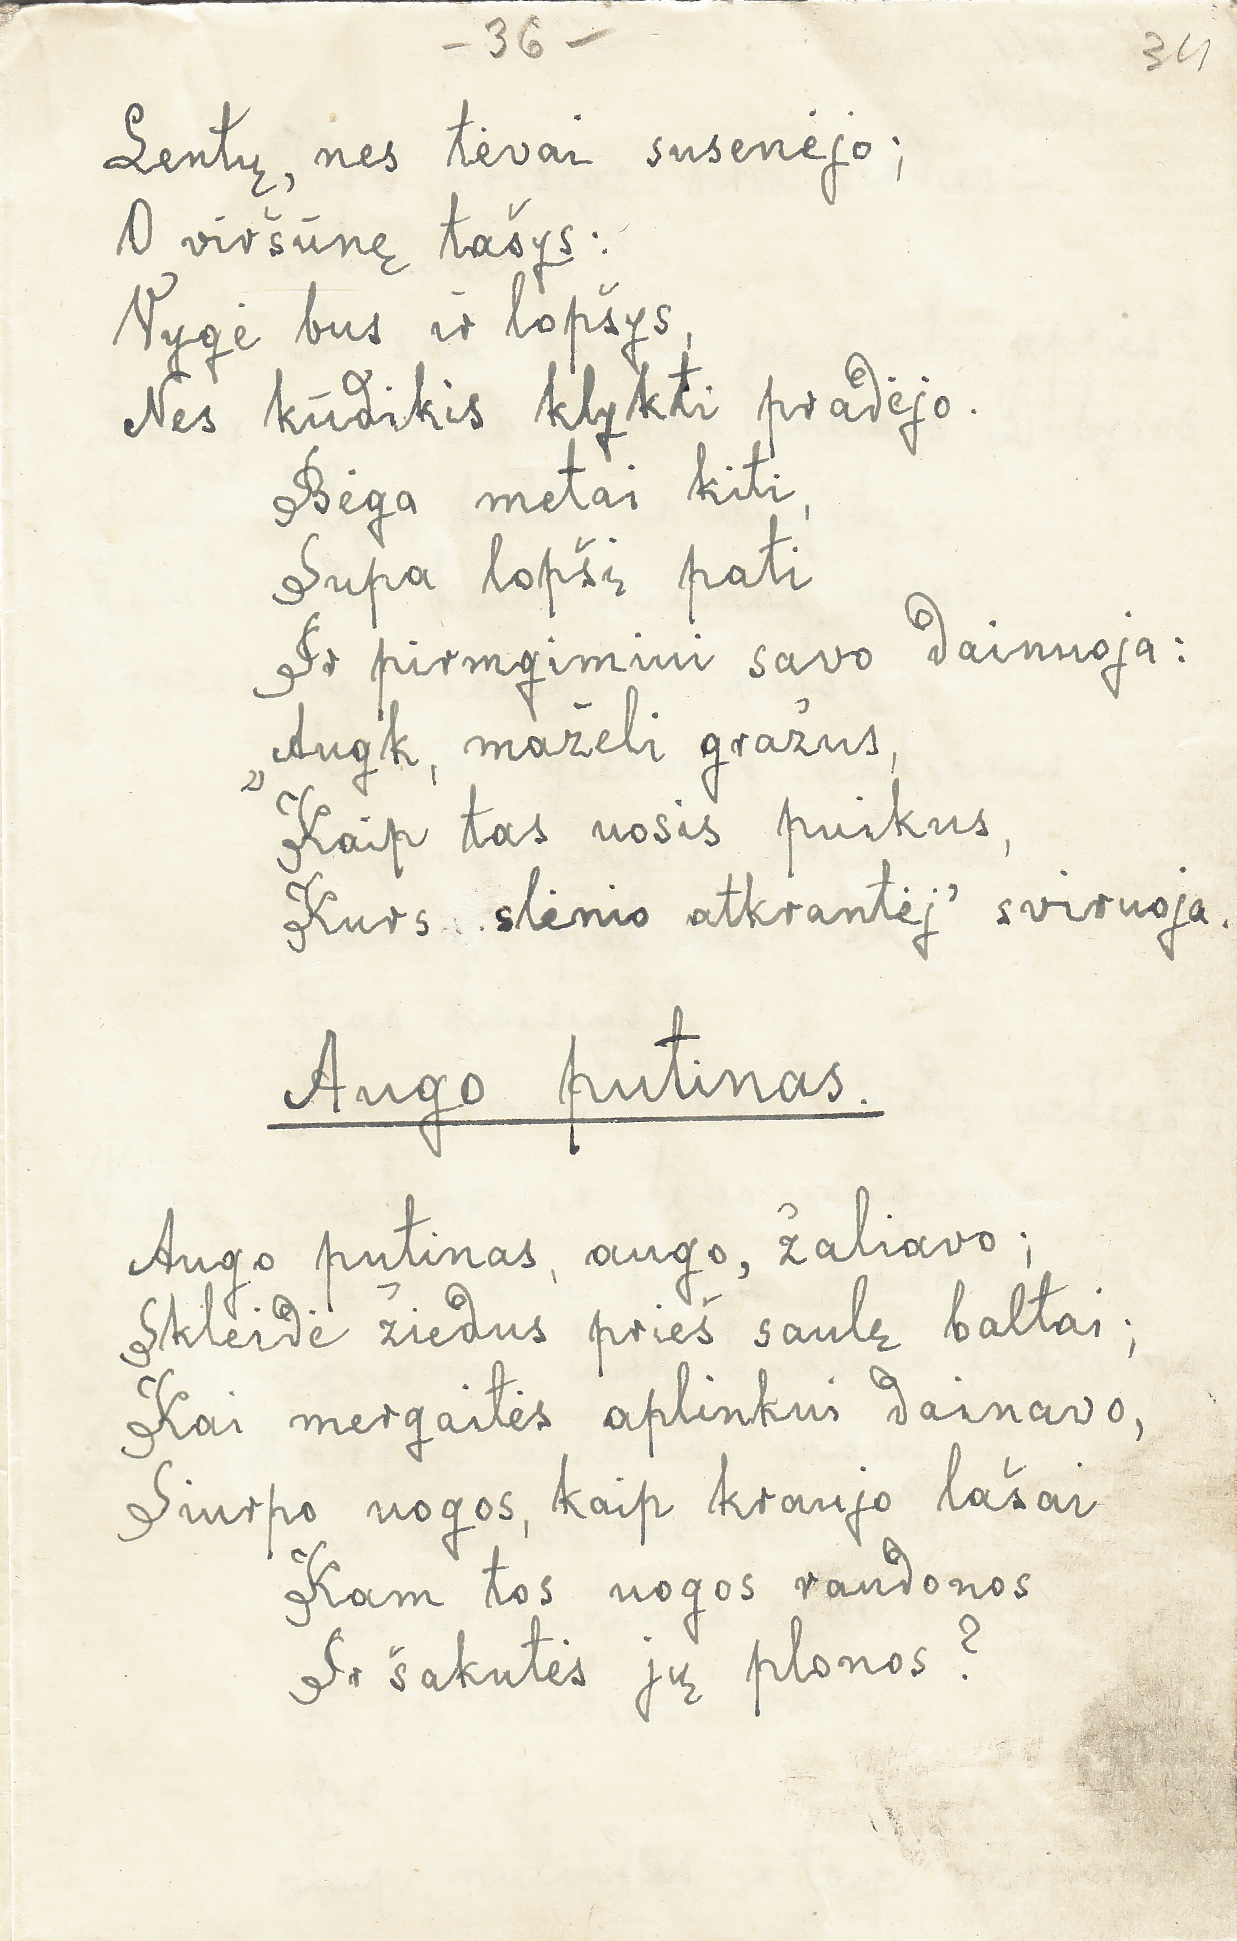 - 36 -
34
Lentų, nes tėvai susenėjo;
O viršūnę tašys:
Vygė bus ir lopšys,
Nes kūdikis klykti pradėjo.
Bėga metai kiti,
Supa lopšį pati
Ir pirmgimiui savo dainuoja:
„Augk, maželi gražus,
Kaip tas uosis puikus,
Kurs slėnio atkrantėj' sviruoja.
Augo putinas.
Augo putinas, augo, žaliavo;
Skleidė žiedus prieš saulę baltai;
Kai mergaitės aplinkui dainavo,
Siurpo uogos, kaip kraujo lašai
Kam tos uogos raudonos
Ir šakutės jų plonos?